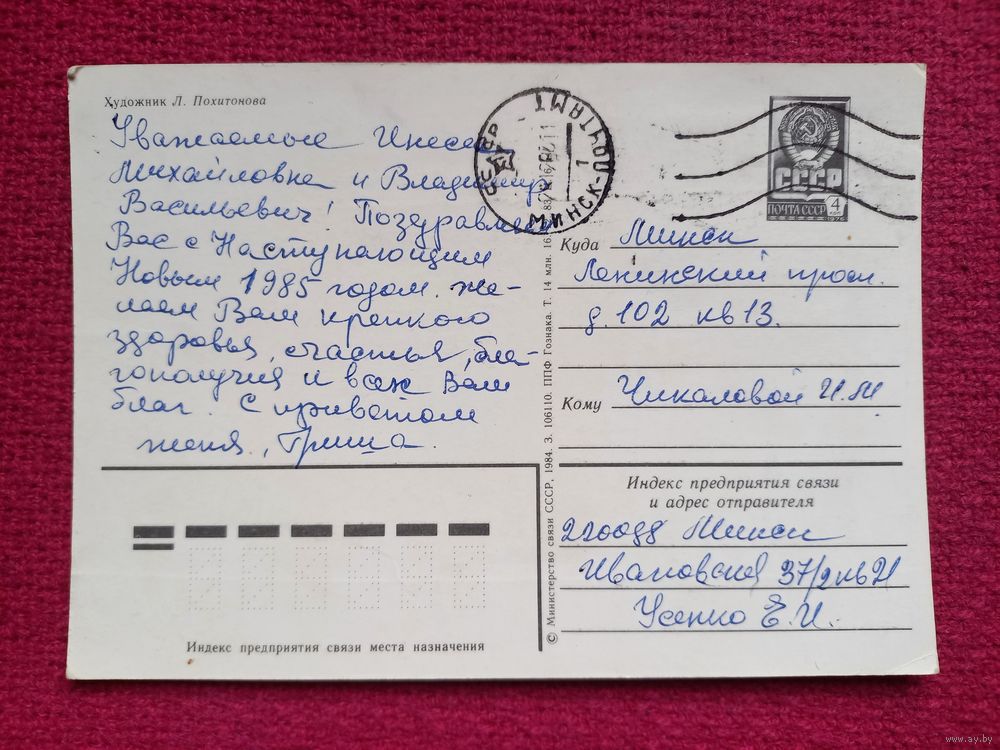 Художник Л. Похитонова
Уважаемые Инеса
Михайловна и Владимир
Васильевич! Поздравляем
Вас с Наступающим
Новым 1985 годом. Же-
лаем Вам крепкого
здоровья, счастья, бла-
гополучия и всех Вам
благ. С приветом
Женя, Гриша.
Индекс предприятия связи места назначения
© Министерство связи СССР, 1984. З. 106110. ППФ Гознака. Т. 14 млн.
СССР
МИНСК-ПОЧТАМТ
1
СССР
ПОЧТА СССР
4
КОП
1976
Куда Минск
Ленинский просп.
д. 102 кв 13.
Кому Чикаловой И.М
Индекс предприятия связи
и адрес отправителя
Минск
Ивановская 37/2 кв 21
Усенко Е.И.
www.ay.by